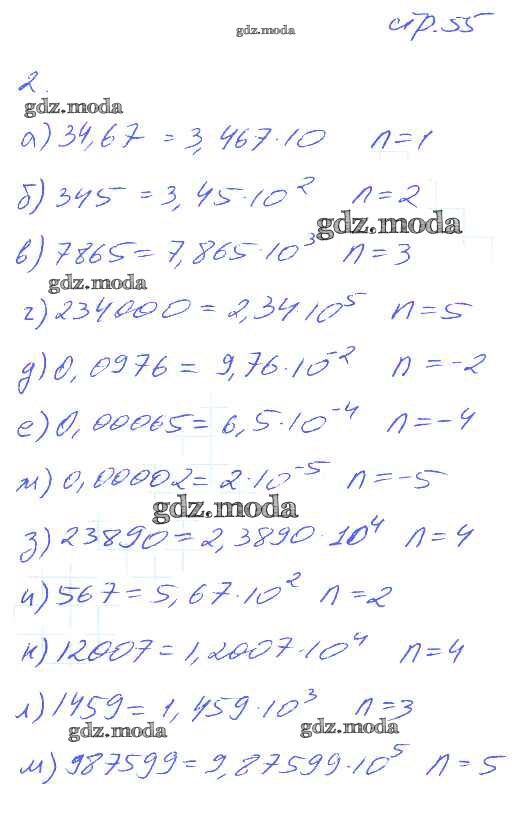 стр.55
gdz.moda
2.
gdz.moda
а) 34,67 = 3,467·10 n=1
б) 345 = 3,45·10² n=2
gdz.moda
в) 7865 = 7,865·10³ n=3
gdz.moda
г) 234000 = 2,34·10⁵ n=5
д) 0,0976 = 9,76·10⁻² n=-2
е) 0,00065 = 6,5·10⁻⁴ n=-4
ж) 0,00002 = 2·10⁻⁵ n=-5
gdz.moda
з) 23890 = 2,3890·10⁴ n=4
и) 567 = 5,67·10² n=2
к) 12007 = 1,2007·10⁴ n=4
л) 1459 = 1,459·10³ n=3
gdz.moda gdz.moda
м) 987599 = 9,87599·10⁵ n=5